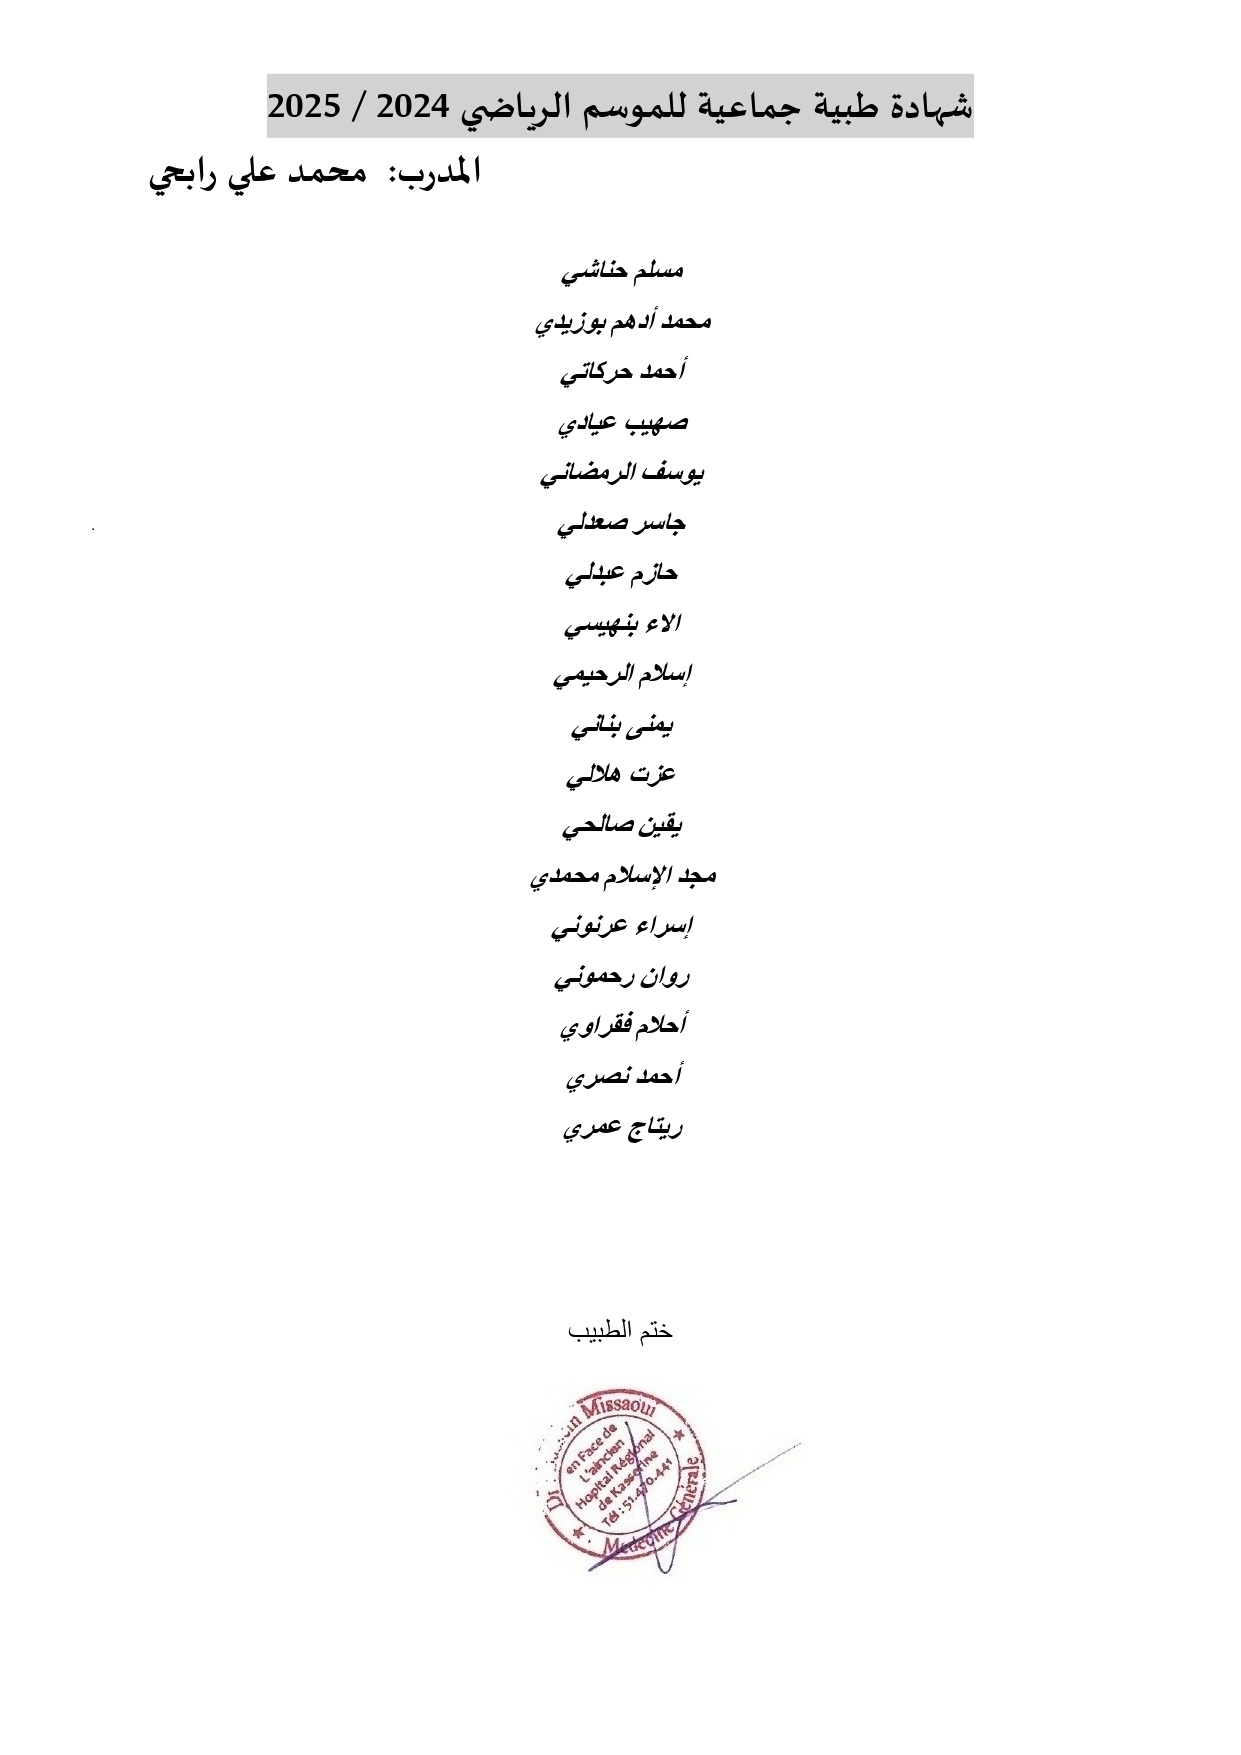 شهادة طبية جماعية للموسم الرياضي 2024 / 2025
المدرب: محمد علي رابحي
مسلم حناشي
محمد أدهم بوزيدي
أحمد حركاتي
صهيب عيادي
يوسف الرمضاني
جاسر صعدلي
حازم عبدلي
الاء بنهيسي
إسلام الرحيمي
يمنى بناني
عزت هلالي
يقين صالحي
مجد الإسلام محمدي
إسراء عرنوني
روان رحموني
أحلام فقراوي
أحمد نصري
ريتاج عمري
ختم الطبيب
Missaoui
en Face de
L'aincien
Hopital Régional
de Kasserine
Tél : 51.470.441
Medecine Générale